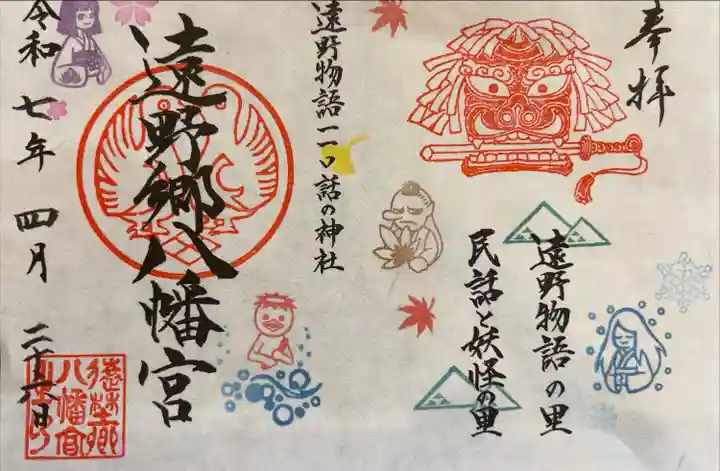 奉拝
遠野物語の里
民話と妖怪の里
遠野物語一一〇話の神社
遠野郷八幡宮
令和七年四月二十六日
遠野郷
八幡宮